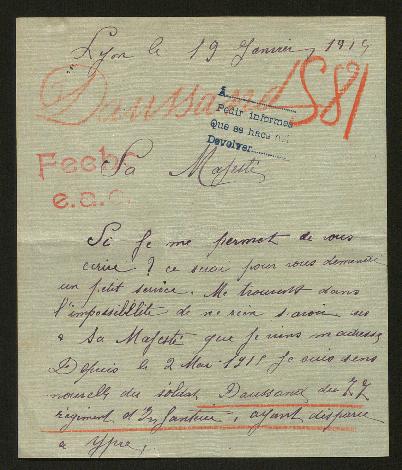 Lyon le 19 Janvier 1915
Daussand 581
A
Pedir informes
Que se hace
Devolver
Fecho
e.a.c.
Sa Majesté
Si je me permet de vous
écrire ? ce sera pour vous demander
un petit service. Me trouvent dans
l'impossibilité de ne rien savoir
a Sa Majesté que je viens m'adresse
Depuis le 2 Mai 1915 je suis sens
nouvelle du soldat Daussand du
Régiment d'Infanterie, ayant disparu
a Ypre,